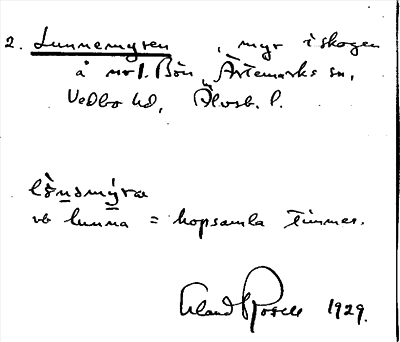 2. Lunnemyren, myr i skogen
å nr 1. Bön, Ärtemarks sn,
Vedbo hd, Älvsb. l.
lo̊nəmýra
vb lunna = hopsamla timmer.
Erland Rosell 1929.